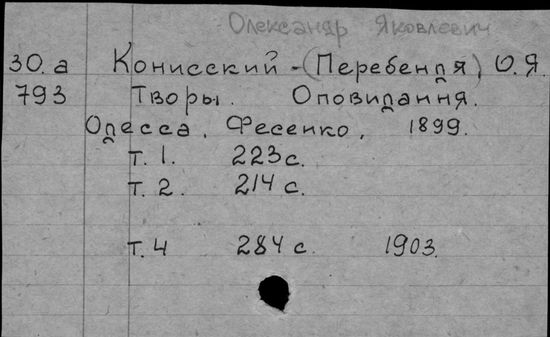 Олександр Яковлевич
30.а Конисский - (Перебендя) О.Я.
793 Творы. Оповидання.
Одесса, Фесенко, 1899.
т. 1. 223 с.
т. 2. 214 с.
т. 4 284 с. 1903.